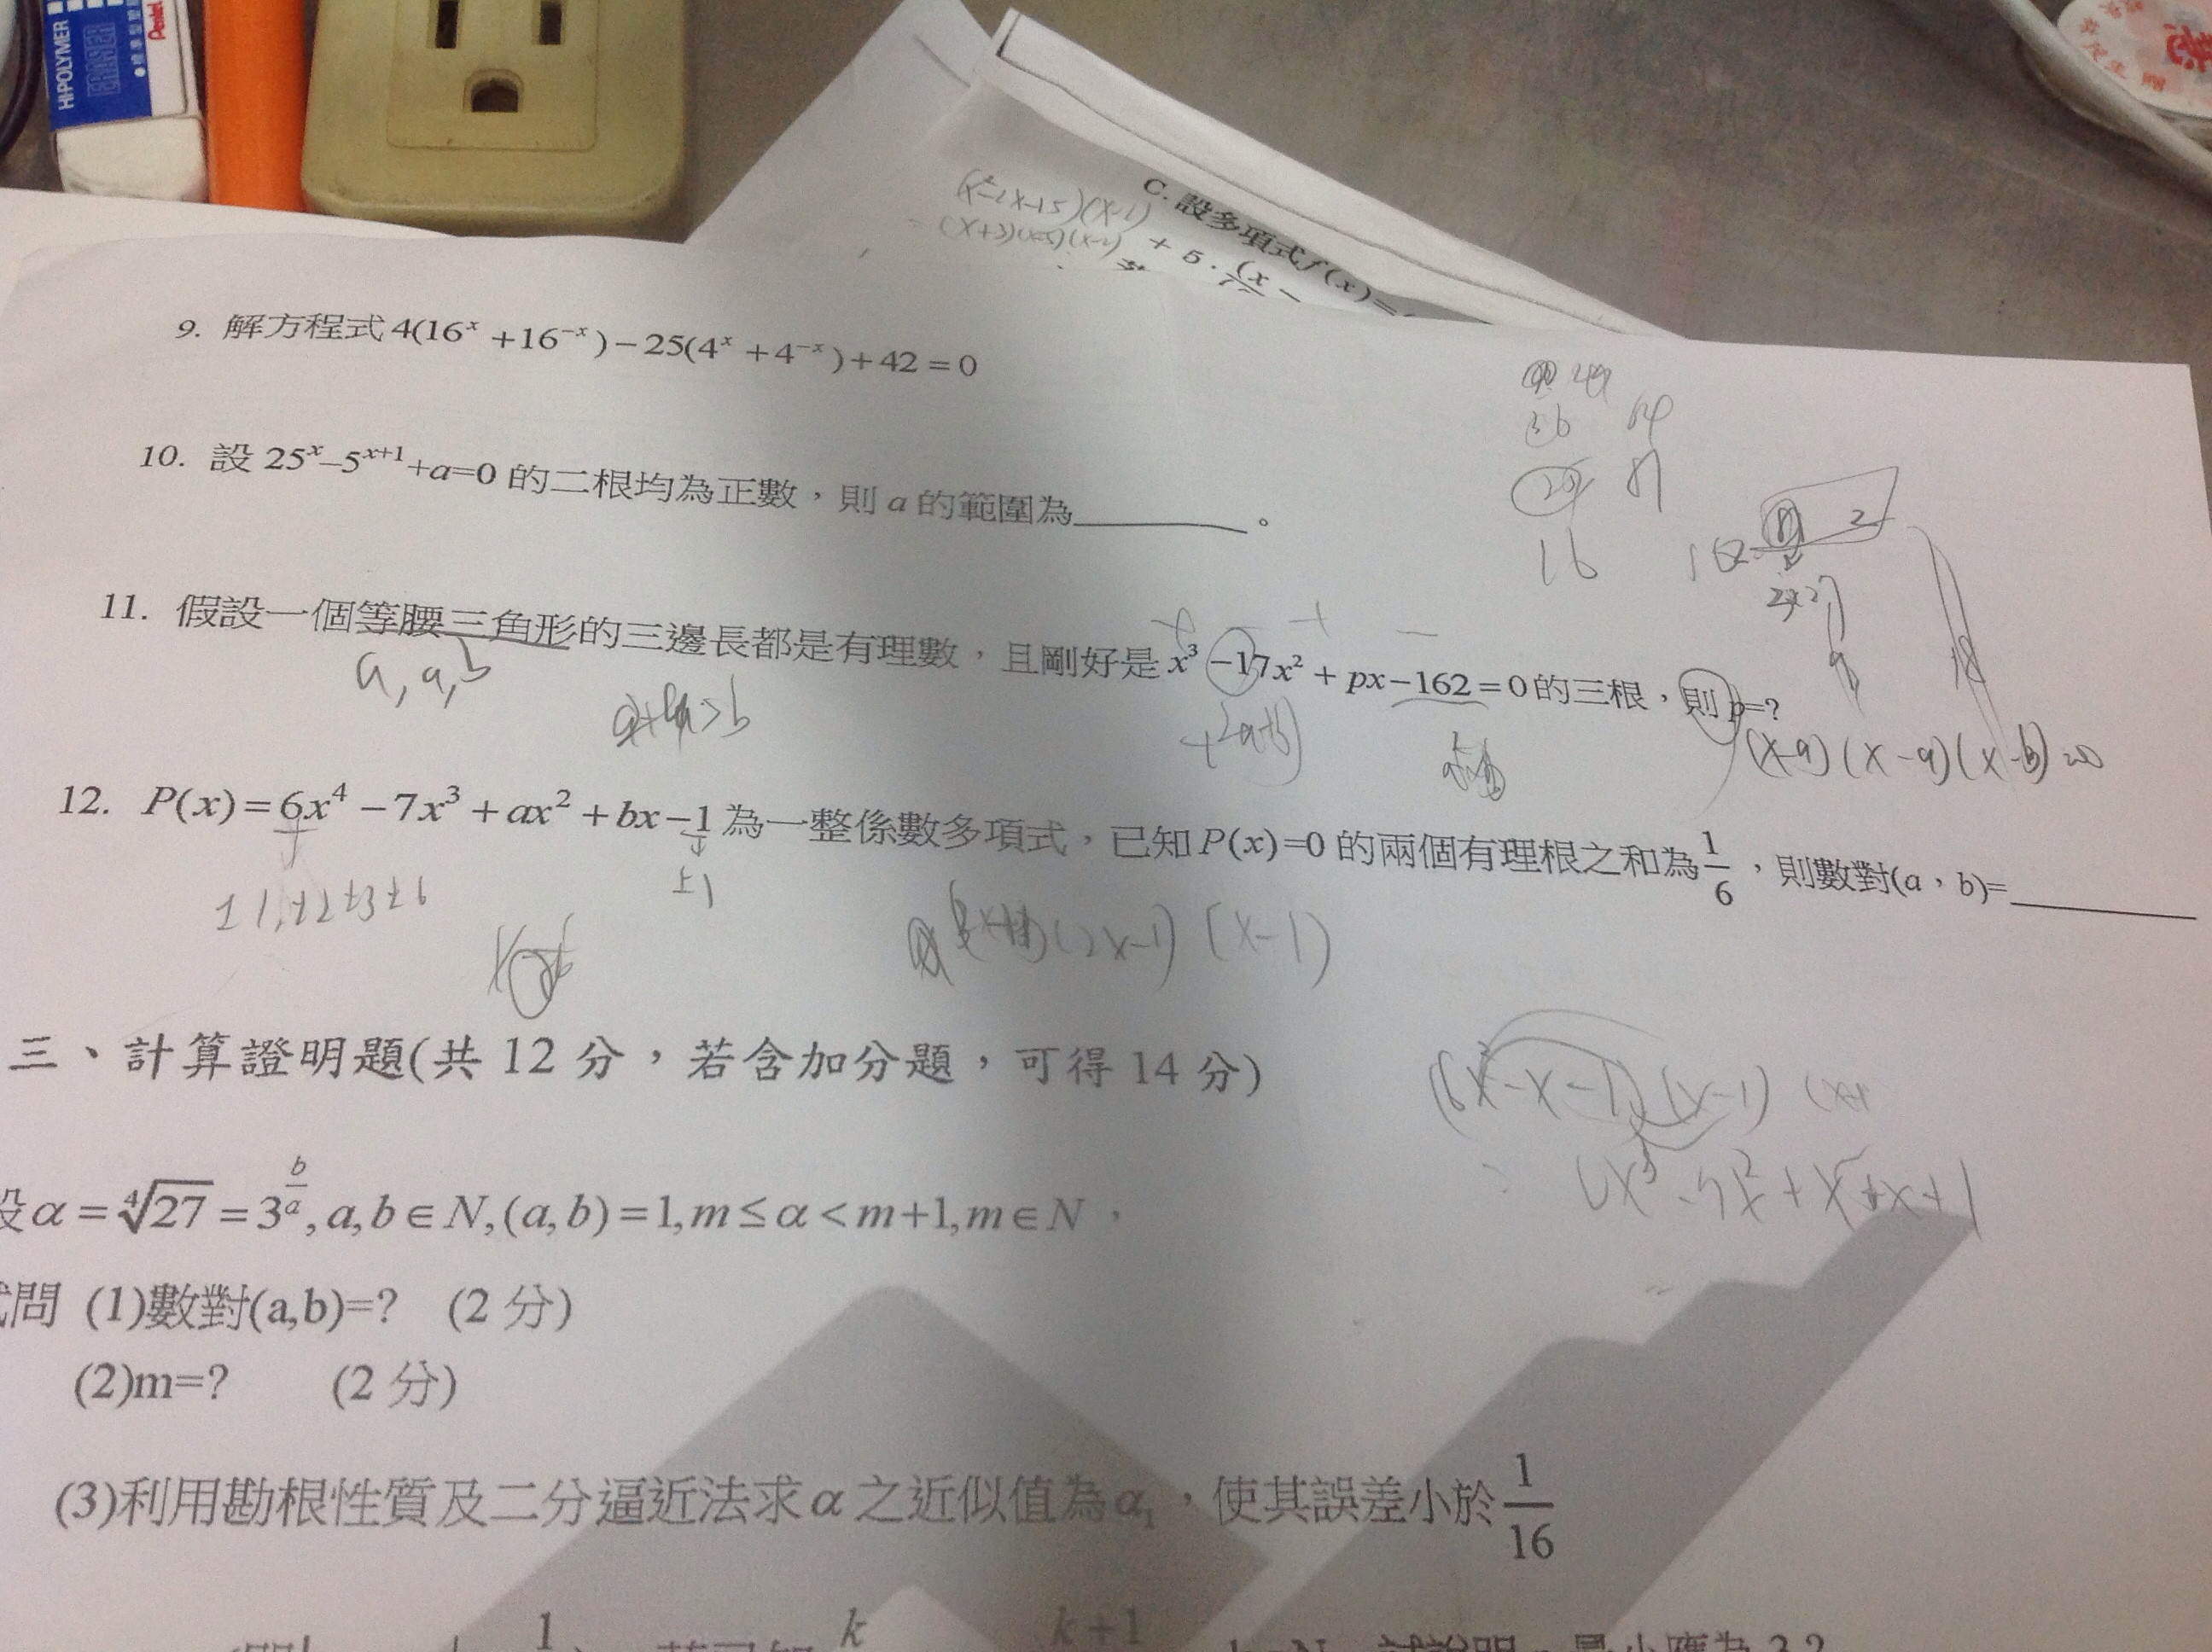 HI-POLYMER
ERASER
Pentel
C. 設多項式f(x)=
+ 5 · (x −
(x+3)(x-5)(x-2)
9. 解方程式 4(16^x +16^{-x}) − 25(4^x + 4^{-x}) + 42 = 0
10. 設 25^x–5^{x+1}+a=0 的二根均為正數，則 a 的範圍為________。
36
16
11. 假設一個等腰三角形的三邊長都是有理數，且剛好是 x³ −17x² + px −162 = 0 的三根，則 p=?
a, a, b
(x-a)(x-a)(x-b)=0
12. P(x) = 6x⁴ − 7x³ + ax² + bx − 1 為一整係數多項式，已知 P(x)=0 的兩個有理根之和為 1/6，則數對(a，b)=________
±1, ±2 ±3 ±6
±1
(2x-1) (x-1)
三、計算證明題(共 12 分，若含加分題，可得 14 分)
(6x²-x-1)(x-1)
設 α = ⁴√27 = 3^{b/a}, a, b ∈ N, (a, b) = 1, m ≤ α < m+1, m ∈ N，
試問 (1)數對(a,b)=? (2 分)
(2)m=? (2 分)
(3)利用勘根性質及二分逼近法求 α 之近似值為 α₁，使其誤差小於 1/16
1 k k+1